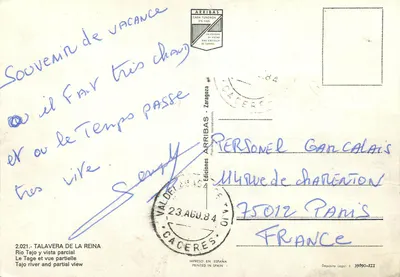 ARRIBAS
SOUVENIR de VACANCE
OU il FAIT très chaud
et ou le Temps PASSE
très vite.
CACERES
Ediciones ARRIBAS - Zaragoza
PERSONEL GARE CALAIS
114 rue de CHARENTON
75012 PARIS
FRANCE
23 AGO. 84
CACERES
2.021.- TALAVERA DE LA REINA
Río Tajo y vista parcial
Le Tage et vue partielle
Tajo river and partial view
IMPRESO EN ESPAÑA
PRINTED IN SPAIN